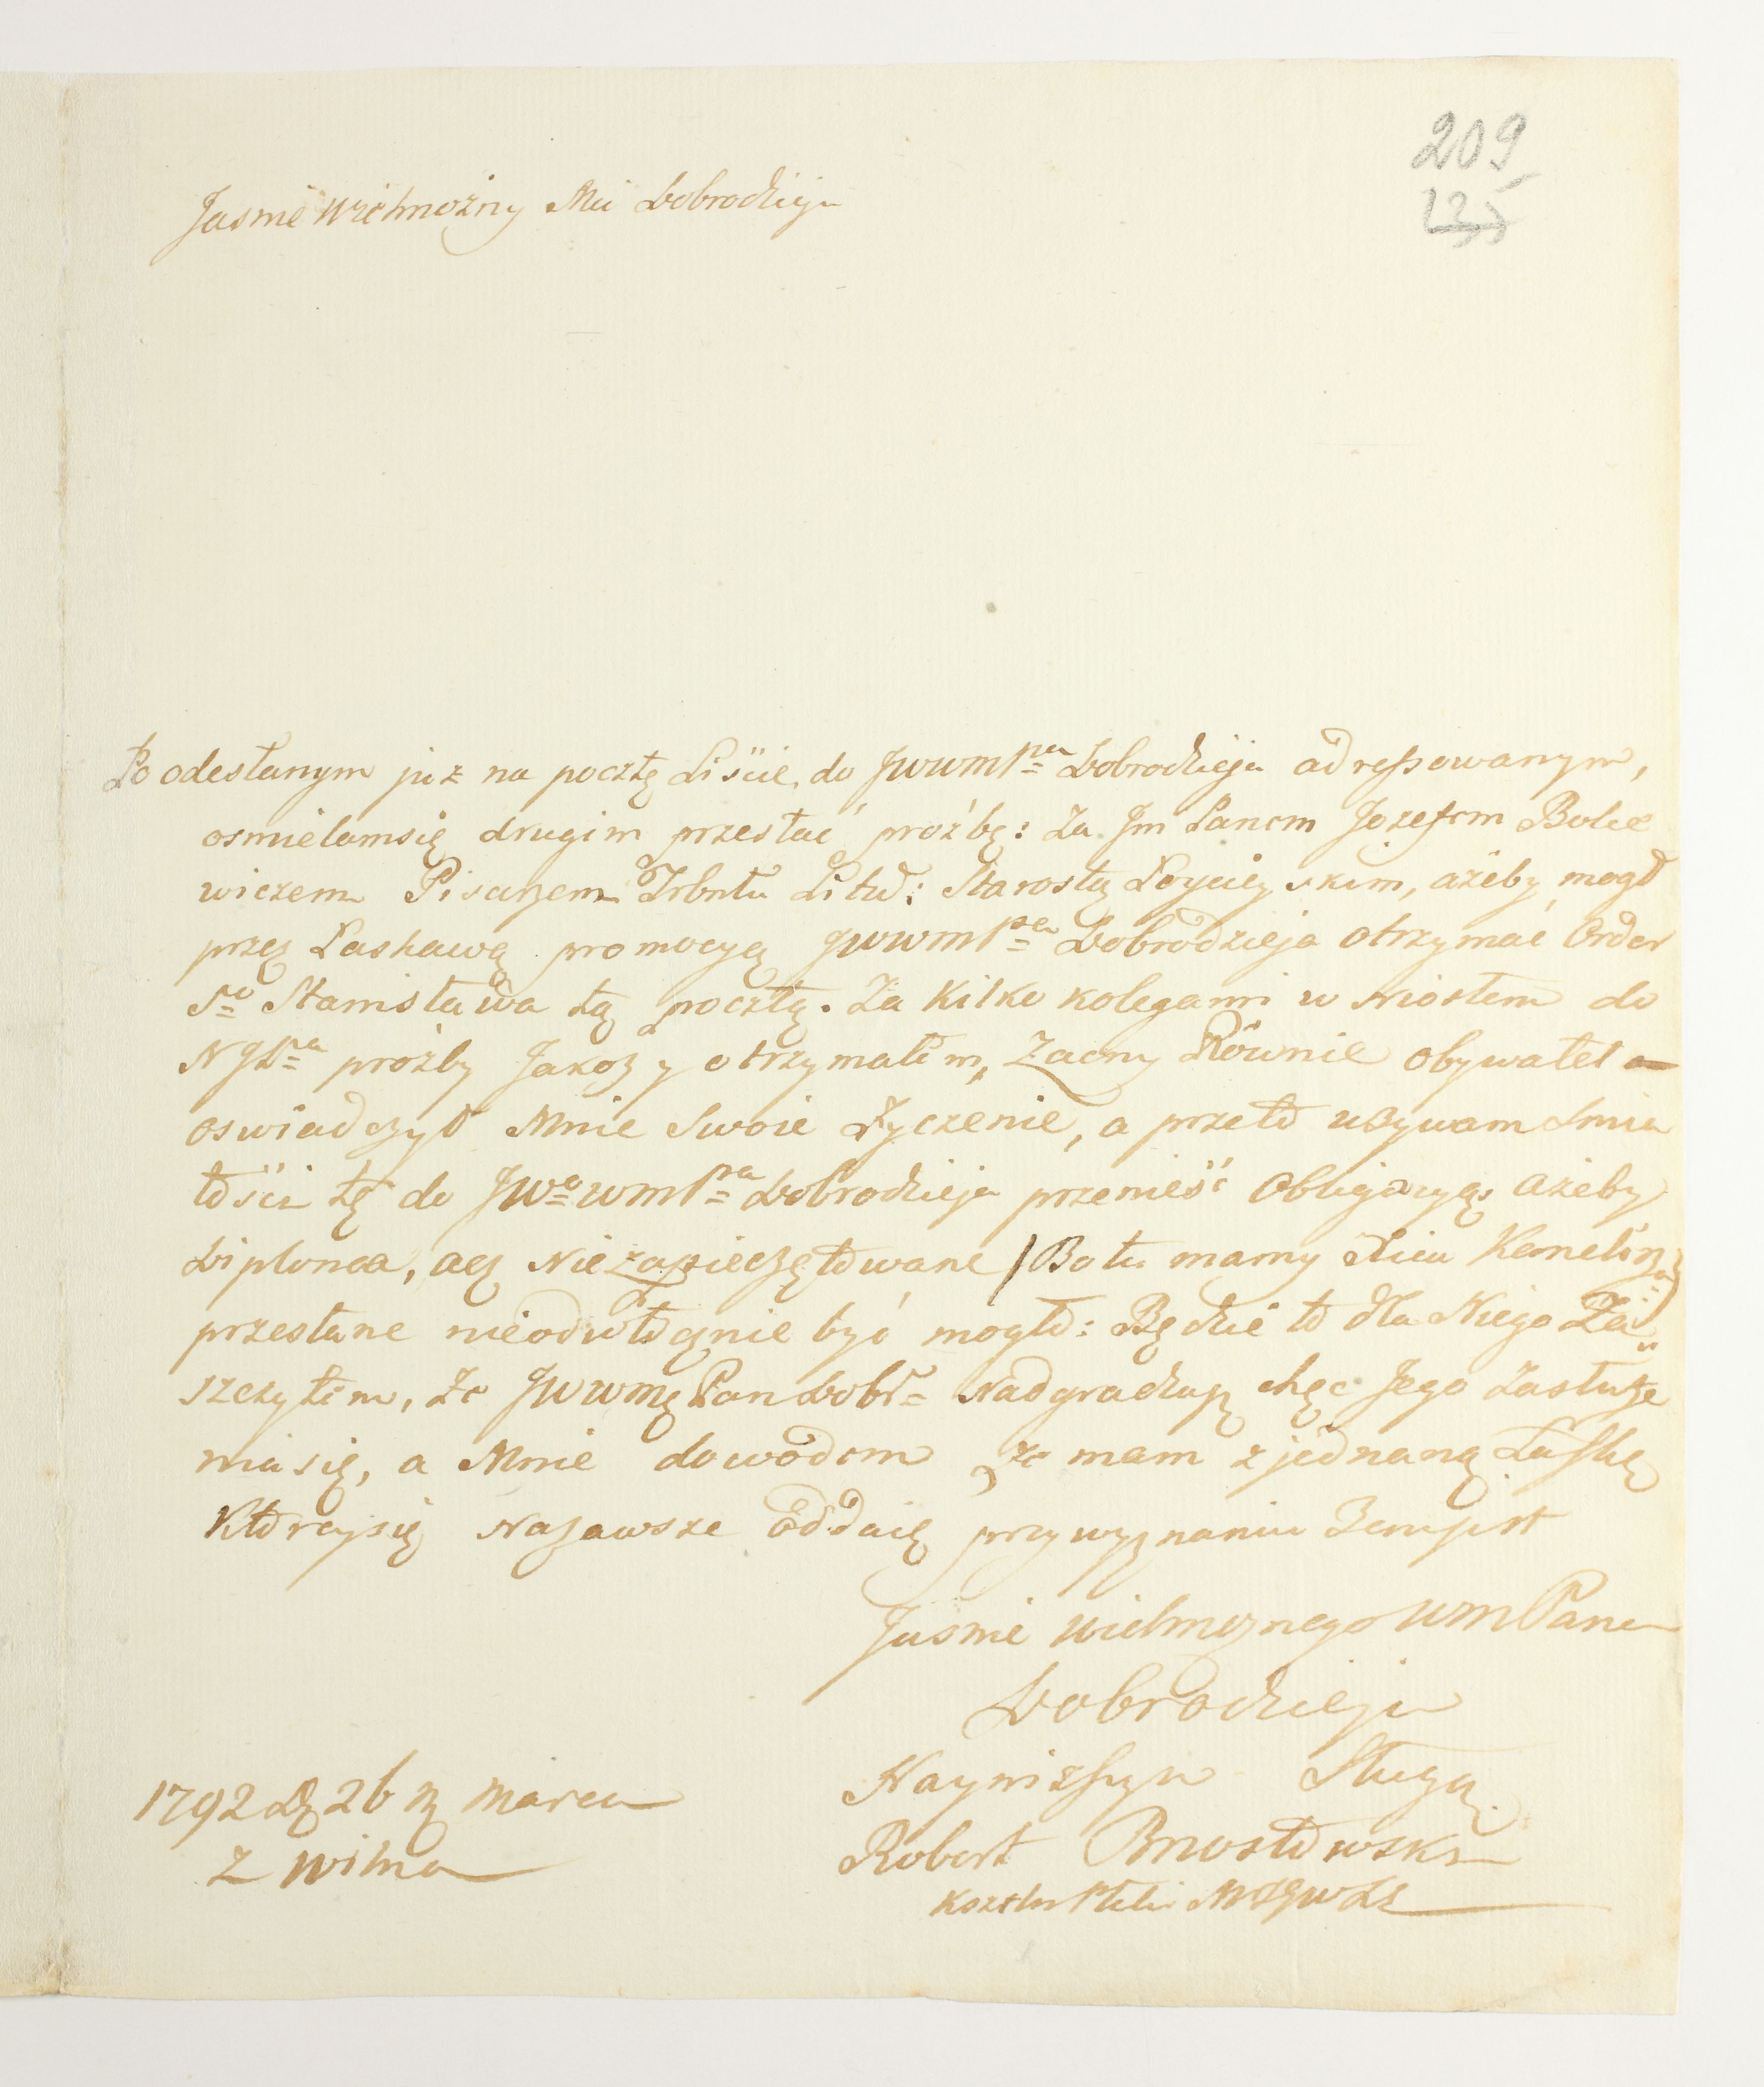 209
125
Jasnie Wielmożny Mci Dobrodzieju
Po odesłanym już na pocztę Liście, do JWWMPna Dobrodzieja adressowanym,
osmielamsię drugim przesłać proźbę: Za Jm Panem Jozefem Bolce
wiczem Pisarzem Trbntu Litt: Starostą ażeby mogł
przez Łaskawą promocyą JWWMPna Dobrodzieja otrzymać Order
So Stanisława tą pocztą. Za Kilko kolegami w Niosłem do
NJPna prozby Jakoz y otrzymałem, Zacny Rownie obywatel
oswiadczył Mnie Swoie Zyczenie, a przeto uzywam Smia
łości tę do JWo WMPna Dobrodzieja przenieść obligacyą, ażeby
Diploma, acz Niezapieczętowane / Bo tu mamy
przesłane nieodwłocznie być mogło: Będzie to dla Niego Za=
szczytem, że JWWMę Pan Dobr= Nadgradzasz chęć Jego Zasłuże
nia się, a Mnie dowodem że mam zjednaną Łaskę
Ktorey się Nazawsze Oddaię przy wyznaniu Zemjest
Jasnie Wielmoznego WMPana
Dobrodzieja
Nayniższym Sługą.
Robert Brzostowski
Kasztn
1792 Dz 26 M Marca
Z Wilna